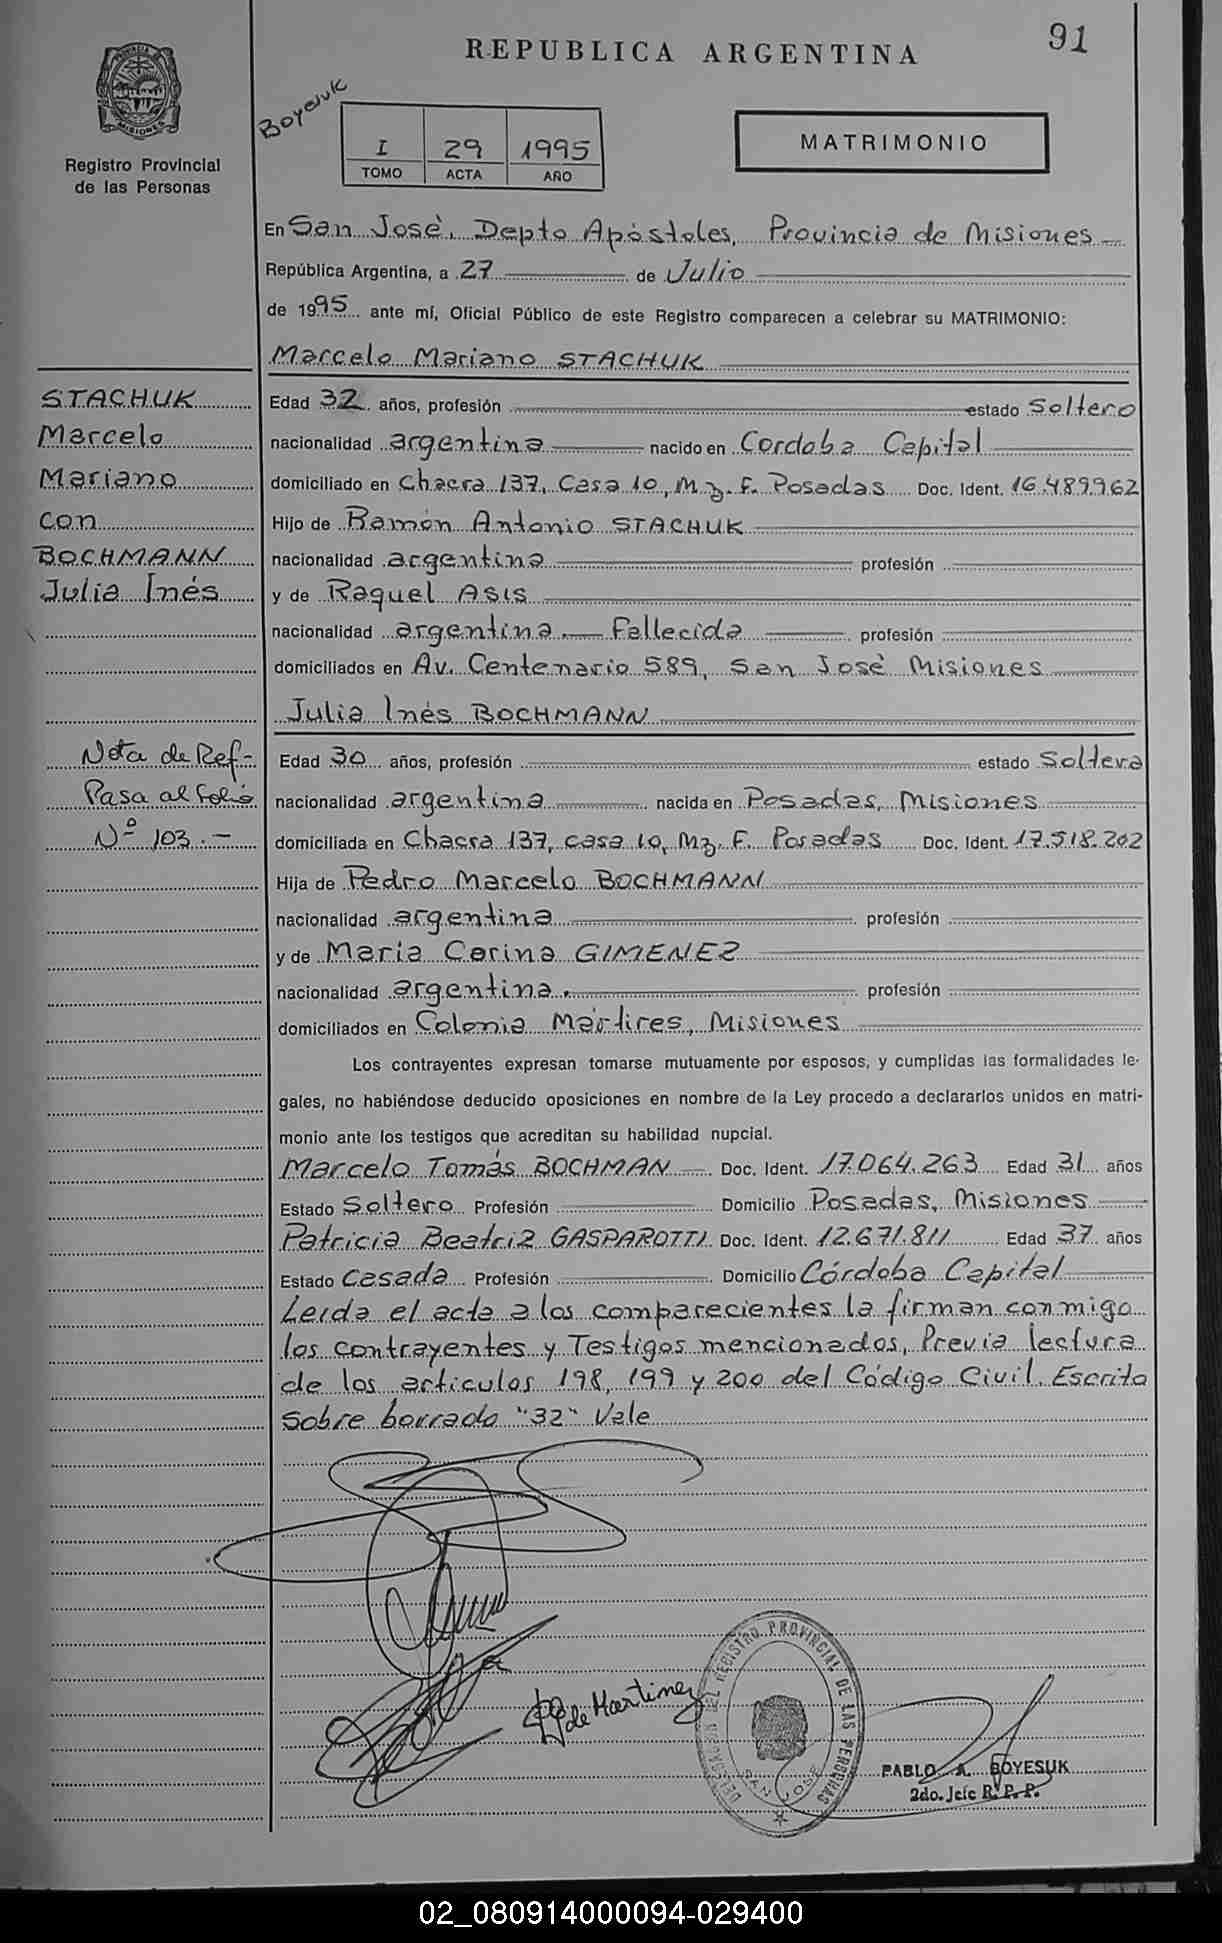 REPUBLICA ARGENTINA
91
PROVINCIA
MISIONES
Registro Provincial
de las Personas
Boyesuk
I 29 1995
TOMO ACTA AÑO
MATRIMONIO
En San José, Depto Apóstoles, Provincia de Misiones
República Argentina, a 27 de Julio
de 1995 ante mí, Oficial Público de este Registro comparecen a celebrar su MATRIMONIO:
Marcelo Mariano STACHUK
STACHUK
Marcelo
Mariano
con
BOCHMANN
Julia Inés
Nota de Ref-
Pasa al Folio
Nº 103.-
Edad 32 años, profesión estado Soltero
nacionalidad argentina nacido en Cordoba Capital
domiciliado en Chacra 137, Casa 10, Mz. F. Posadas Doc. Ident. 16.489.962
Hijo de Ramón Antonio STACHUK
nacionalidad argentina profesión
y de Raquel ASIS
nacionalidad argentina.— Fallecida profesión
domiciliados en Av. Centenario 589, San José Misiones
Julia Inés BOCHMANN
Edad 30 años, profesión estado Soltera
nacionalidad argentina nacida en Posadas, Misiones
domiciliada en Chacra 137, casa 10, Mz. F. Posadas Doc. Ident. 17.518.202
Hija de Pedro Marcelo BOCHMANN
nacionalidad argentina profesión
y de María Corina GIMENEZ
nacionalidad argentina. profesión
domiciliados en Colonia Mártires, Misiones
Los contrayentes expresan tomarse mutuamente por esposos, y cumplidas las formalidades le-
gales, no habiéndose deducido oposiciones en nombre de la Ley procedo a declararlos unidos en matri-
monio ante los testigos que acreditan su habilidad nupcial.
Marcelo Tomás BOCHMAN Doc. Ident. 17.064.263 Edad 31 años
Estado Soltero Profesión Domicilio Posadas, Misiones
Patricia Beatriz GASPAROTTI Doc. Ident. 12.671.811 Edad 37 años
Estado casada Profesión Domicilio Córdoba Capital
Leida el acta a los comparecientes la firman conmigo
los contrayentes y Testigos mencionados, Previa lectura
de los articulos 198, 199 y 200 del Código Civil. Escrito
Sobre borrado "32" Vale
de Martinez
DELEGACION DEL REGISTRO PROVINCIAL DE LAS PERSONAS
SAN JOSE
PABLO A. BOYESUK
2do. Jefe R. P. P.
02_080914000094-029400